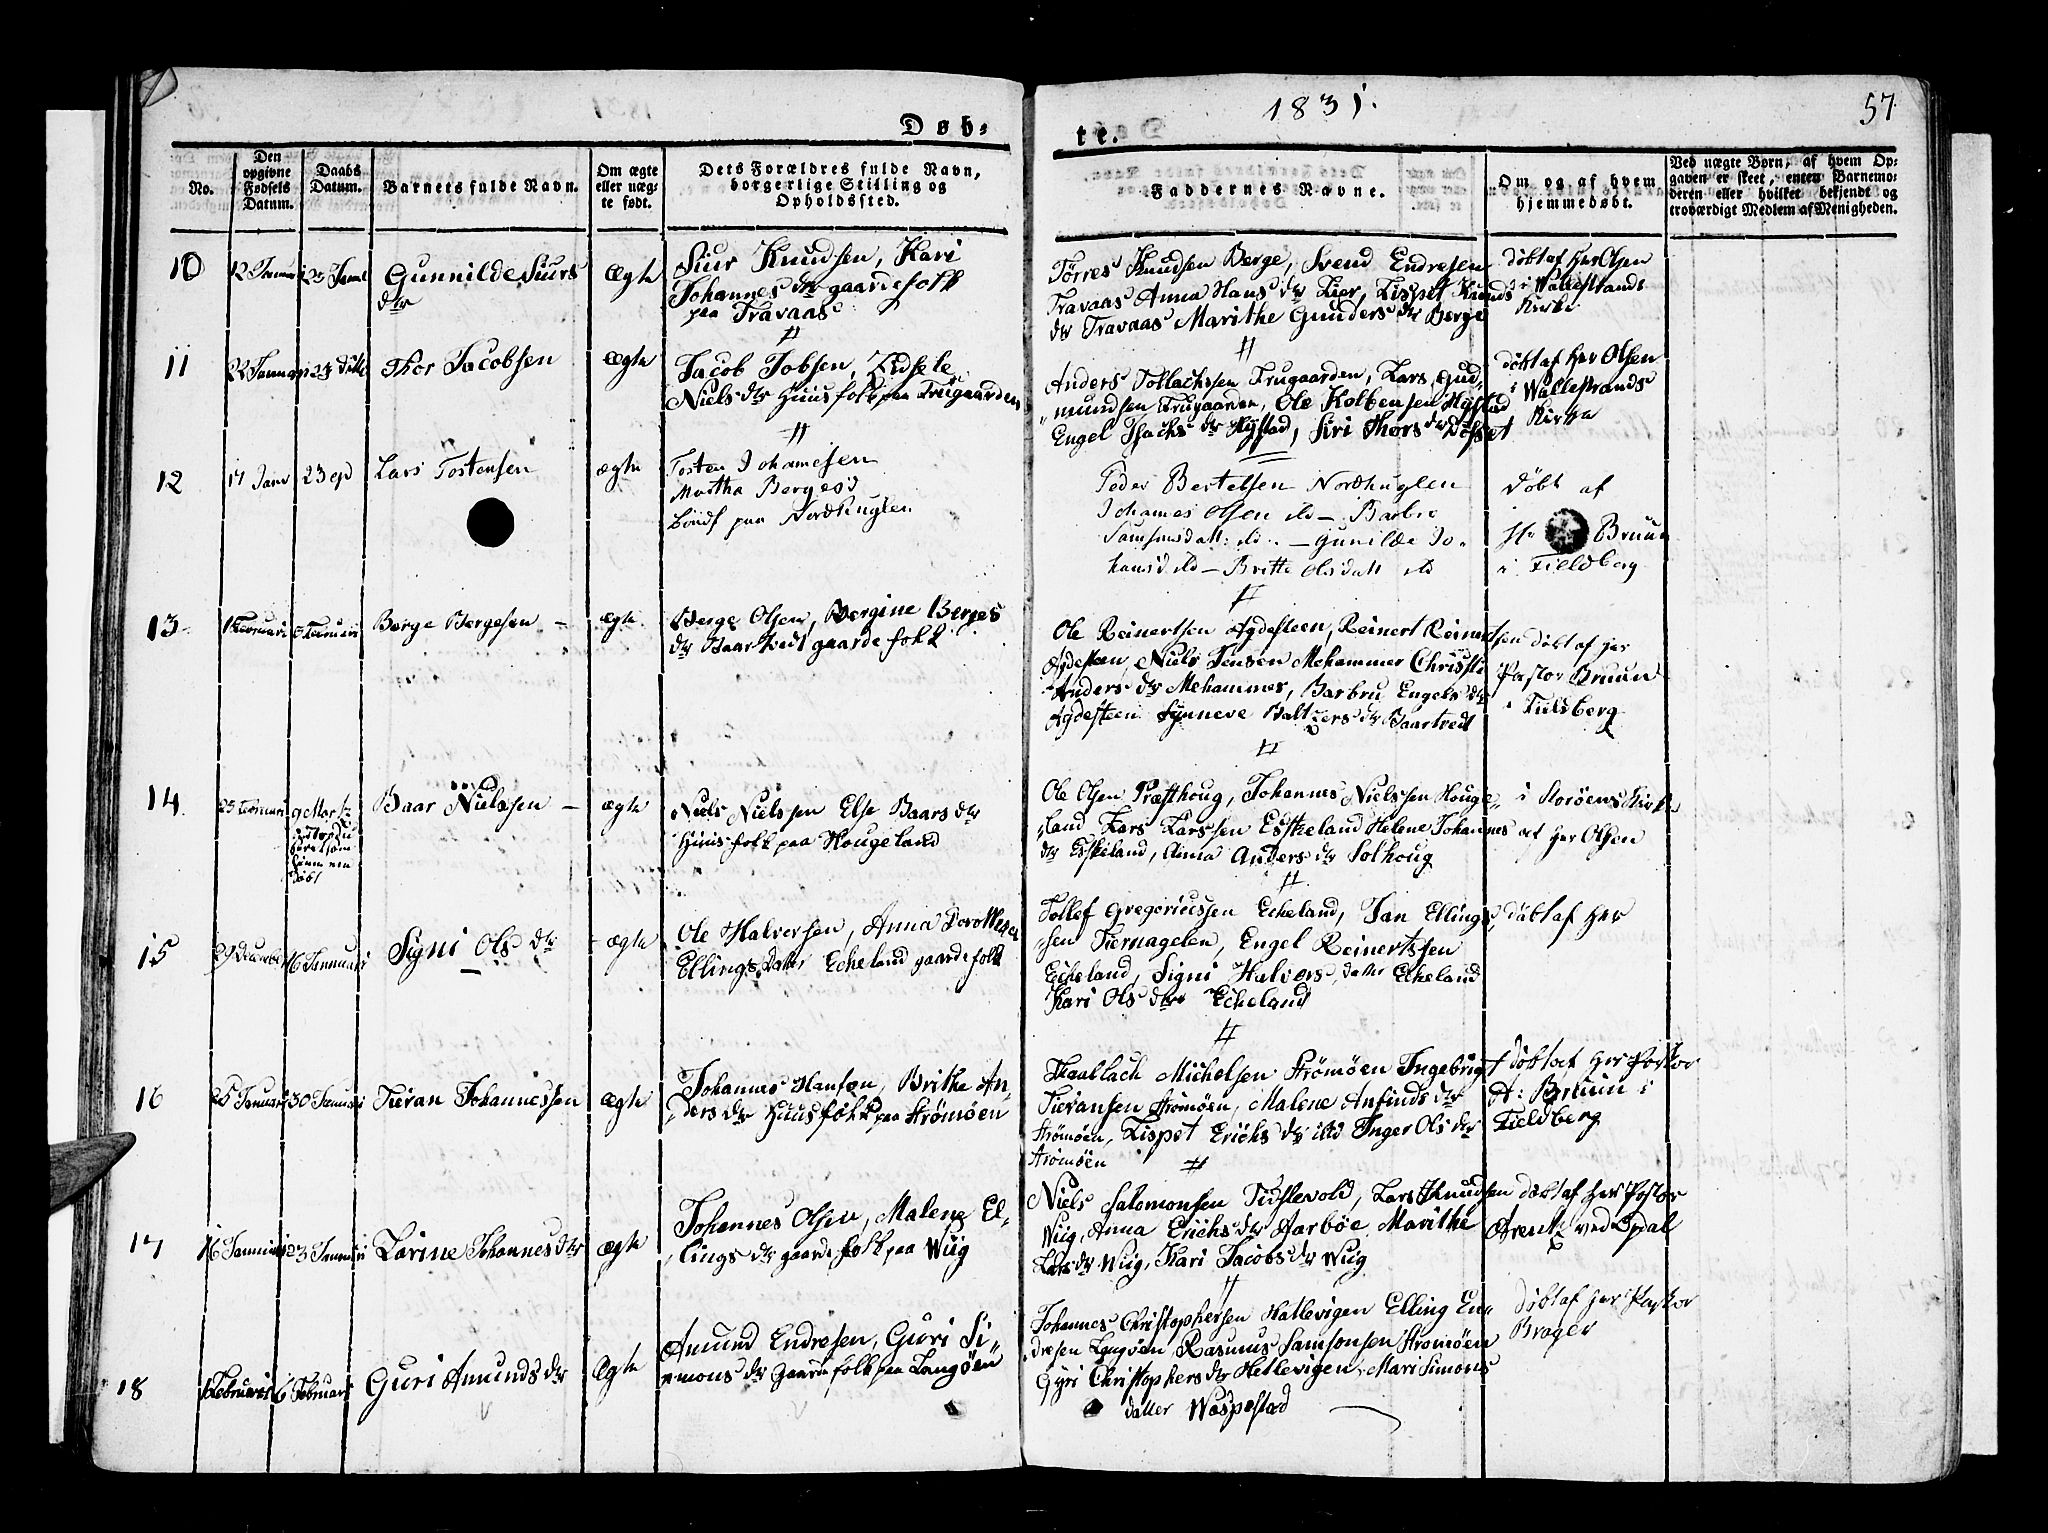 1831.
57
Døb-
te.
No.
Den opgivne Fødsels Datum.
Daabs Datum.
Barnets fulde Navn.
Om ægte eller uæg-te født.
Dets Forældres fulde Navn, borgerlige Stilling og Opholdssted.
Faddernes Navne.
Om og af hvem hjemmedøbt.
Ved uægte Børn, af hvem Op-gaven er skeet, enten Barnemo-deren eller hvilket bekjendt og troværdigt Medlem af Menigheden.
10
Gunnilde Siurs
dtr
Ægte
Siur Knudsen, Kari
Johannes dtr gaardefolk
paa Travaas
Tørres Knudsen Berge, Svend Endresen
Travaas Anna Hans dtr Lier, Lispet Knuds
dtr Travaas Marithe Gunders dtr Berge
døbt af Her Olsen
i Wallestrands
Kirke
11
Thor Jacobsen
Ægte
Jacob Jobsen, Zidsele
Niels dtr Huusfolk paa Frugaarden
Anders Tollachssen Frugaarden, Lars Gud-
mundsen Frugaarden, Ole Kolbensen Hystad
Engel Isachs dtr Hystad, Siri Thors dtr Døsset
døbt af Her Olsen
i Wallestrands
Kirke
12
17 Janr
23 ej
Lars Tostensen
ægte
Tosten Johanesen
Martha Bergesd
Bøndf paa Nordhuglen
Peder Bertelsen Nordhuglen
Johannes Olsen ib – Barbro
Samsonsdatt: ib. – Gunilde Jo-
hansd ib – Britte Olsdatt ib
Døbt af
Hr Bruun
i Fieldberg
13
1 Februari
6 Februari
Børge Børgesen –
ægte
Børge Olsen, Børgine Børges
dtr Baartvedt gaardefolk
Ole Reinertsen Agdesteen, Reinert Reinert
Agdesteen, Niels Jensen Mehammer Christi
Anders dtr Mehammer, Barbru Engels dtr
Agdesteen Synneve Baltzers dtr Baartvedt
sen døbt af Her
Pastor Bruun
i Fieldberg
14
25 Februari
9 Marts
Baar Nielssen –
ægte
Niels Nielssen Else Baars dtr
Huusfolk paa Hougeland
Ole Olsen Præsthoug, Johannes Nielssen Houge-
land Lars Larssen Eskeland Helene Johannes
dtr Eskeland, Anna Anders dtr Solhoug
i Storøens Kirke
af Her Olsen
15
29 December
16 Januari
Signi Ols dtr
ægte
Ole Halversen, Anna Dorothea
Ellings Datter Eckeland gaardefolk
Tollef Gregoriussen Eckeland, Jan Ellings-
sen Fiernagelen, Engel Reinertssen
Eckeland, Signi Halvors datter Eckeland
Kari Ols dtr Eckeland
døbt af Her
16
25 Januari
30 Januari
Tieran Johannessen
Ægte
Johannes Hansen, Brithe An-
ders dtr Huusfolk paa Strømøen
Haallach Michelsen Strømøen Ingebrigt
Tieransen Strømøen, Malene Anfinds dtr
Strømøen, Lispet Erichs dtr ibd Inger Ols dtr
Strømøen
døbt af Her Pastor
A: Bruun i
Fieldberg
17
16 Januari
23 Januari
Larine Johannes dtr
ægte
Johannes Olsen, Malene El-
lings dtr gaardefolk paa Wiig
Niels Salomonsen Tidslevold, Lars Knudsen
Wiig, Anna Erichs dtr Aarbøe, Marithe
Lars dtr Wiig, Kari Jacobs dtr Wiig
døbt af Her Pastor
Arentz ved Opdal
18
1 Februari
6 Februari
Guri Amunds dtr
Ægte
Amund Endresen, Guri Si-
mons dtr Gaardefolk paa Langøen
Johannes Christophersen Hatlevigen Elling En-
dresen Langøen, Rasmus Samsonsen Strømøen
Gyri Christophers dtr Hetlevigen, Mari Simons
datter Waspestad
Døbt af Her Pastor
Brager